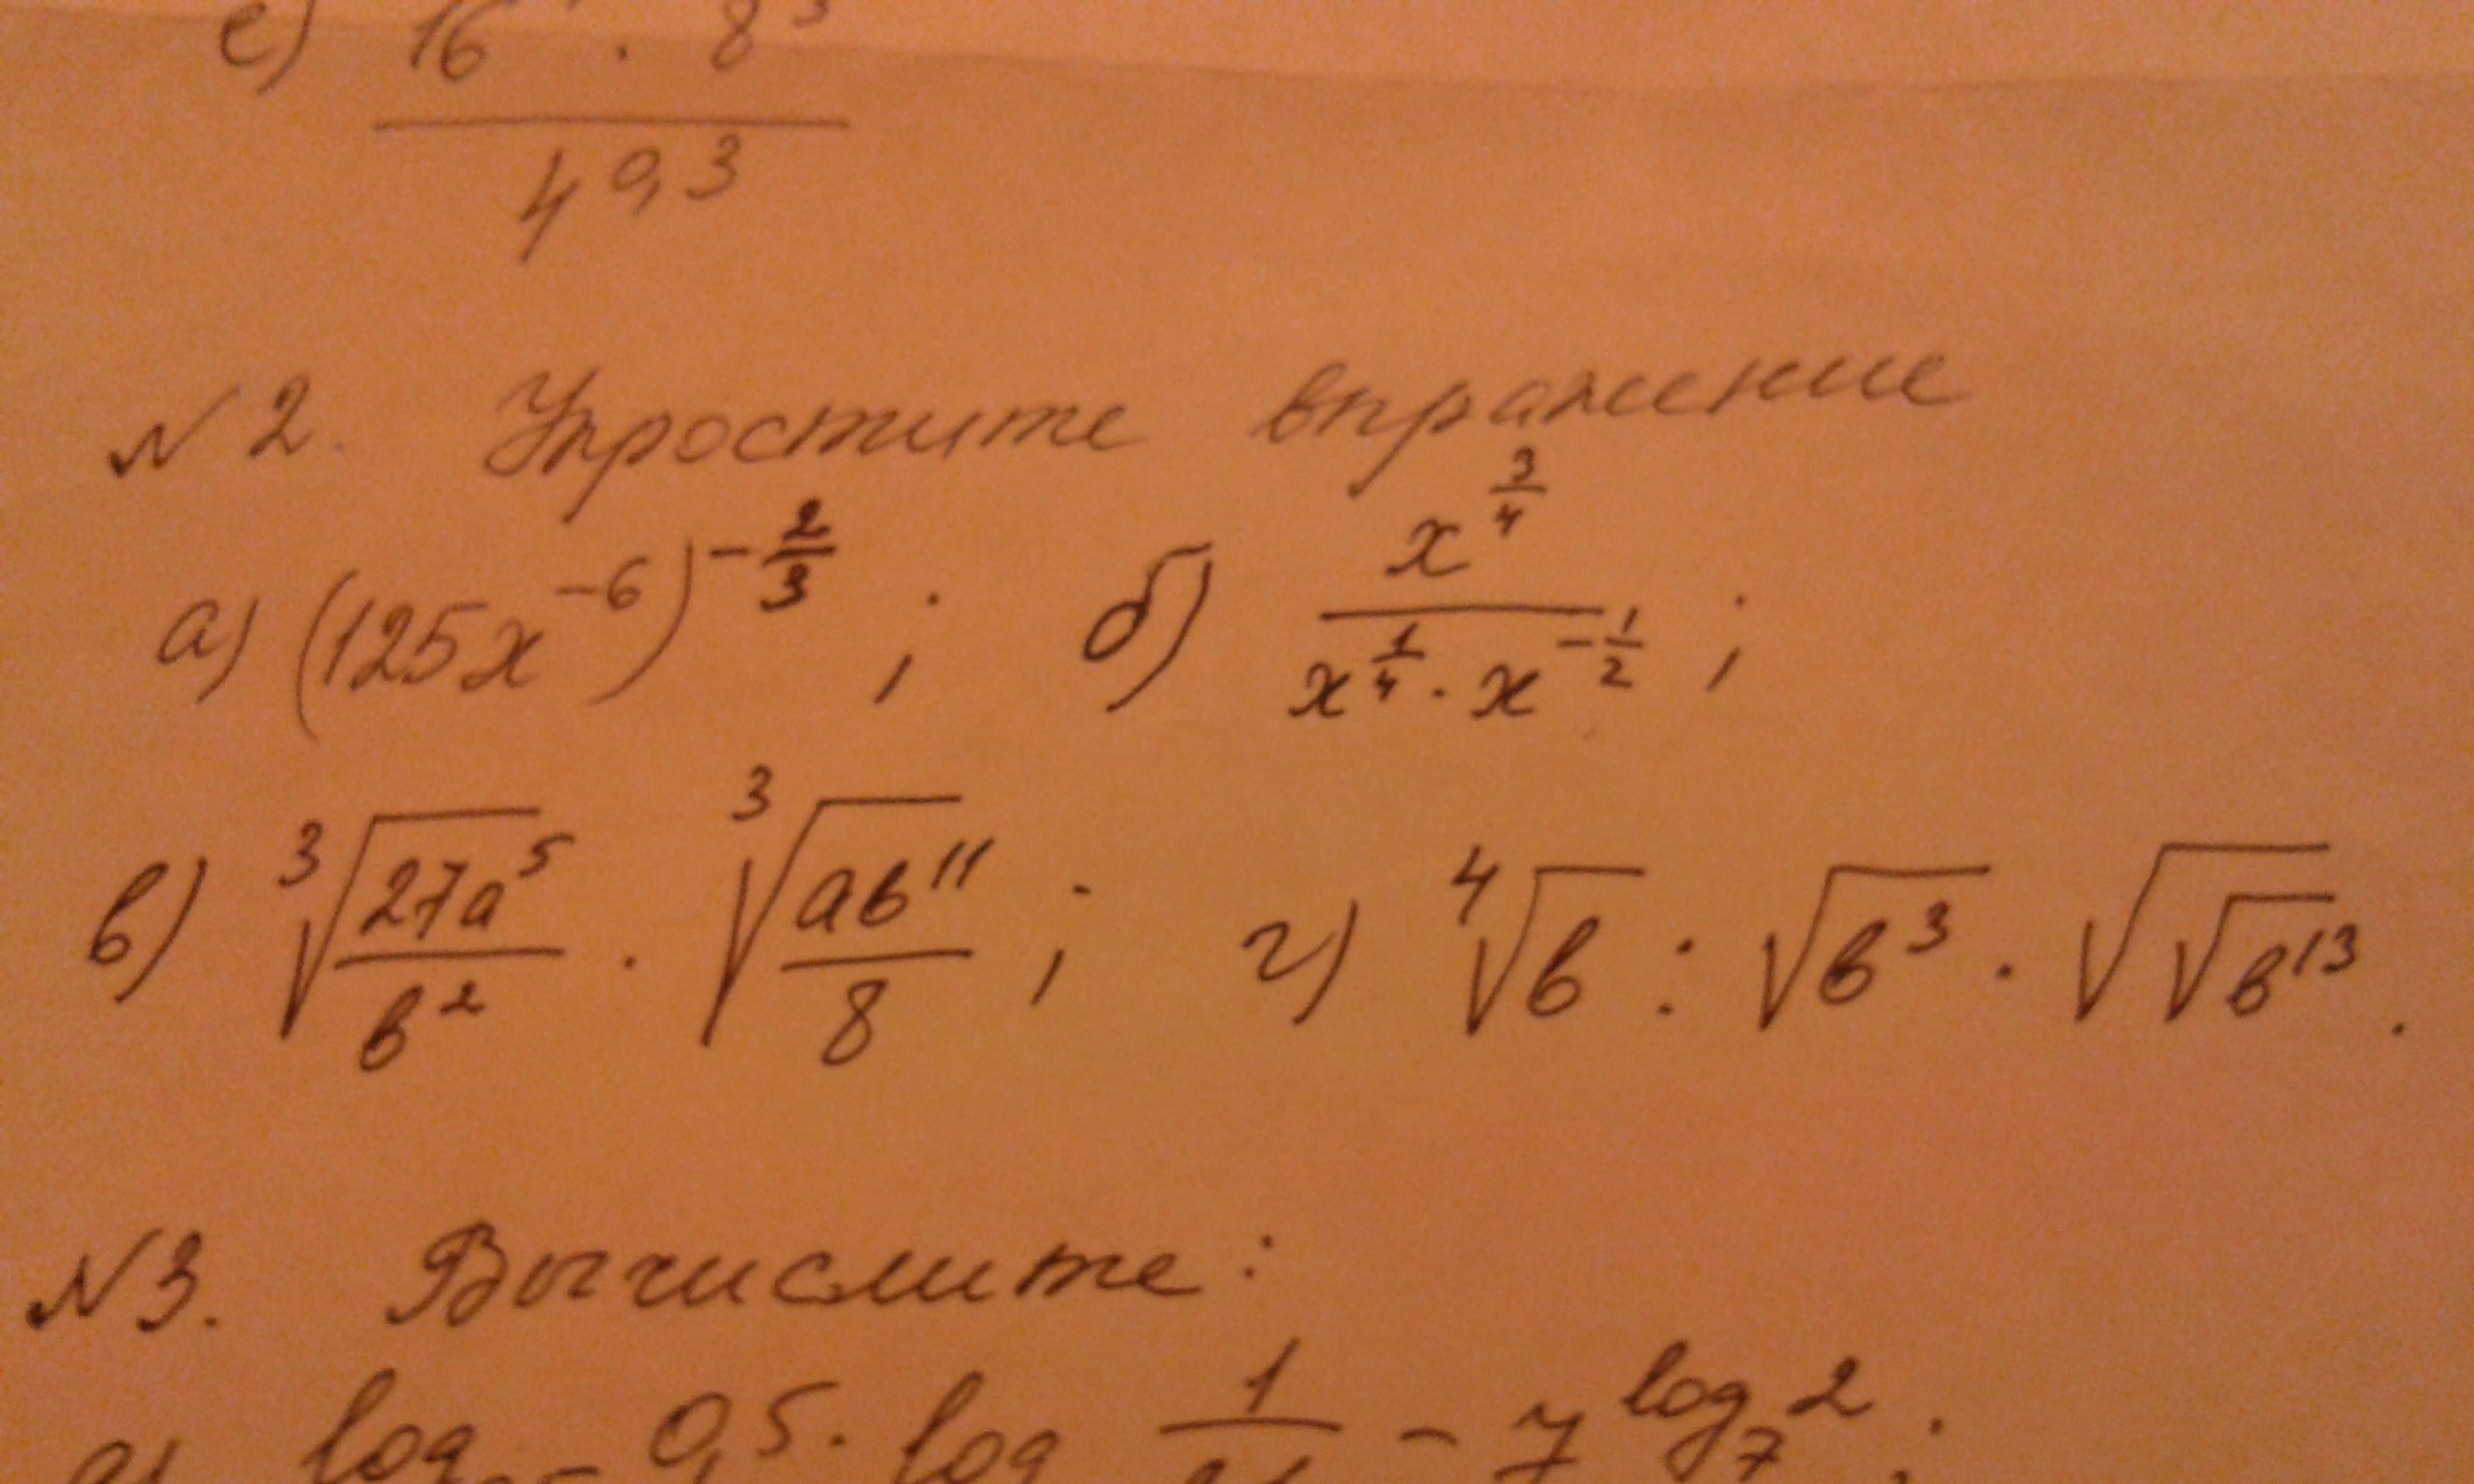 е) 16 · 8³
4^0,3
№2. Упростите впражение
а) (125x^-6)^-2/3 ; б) x^3/4 / x^1/4 · x^-1/2 ;
в) ³√(27a⁵/b²) · ³√(ab¹¹/8) ; г) ⁴√b : √b³ · √√b¹³ .
№3. Вычислите:
log 0,5 · log 1 − 7^log₇2 ;